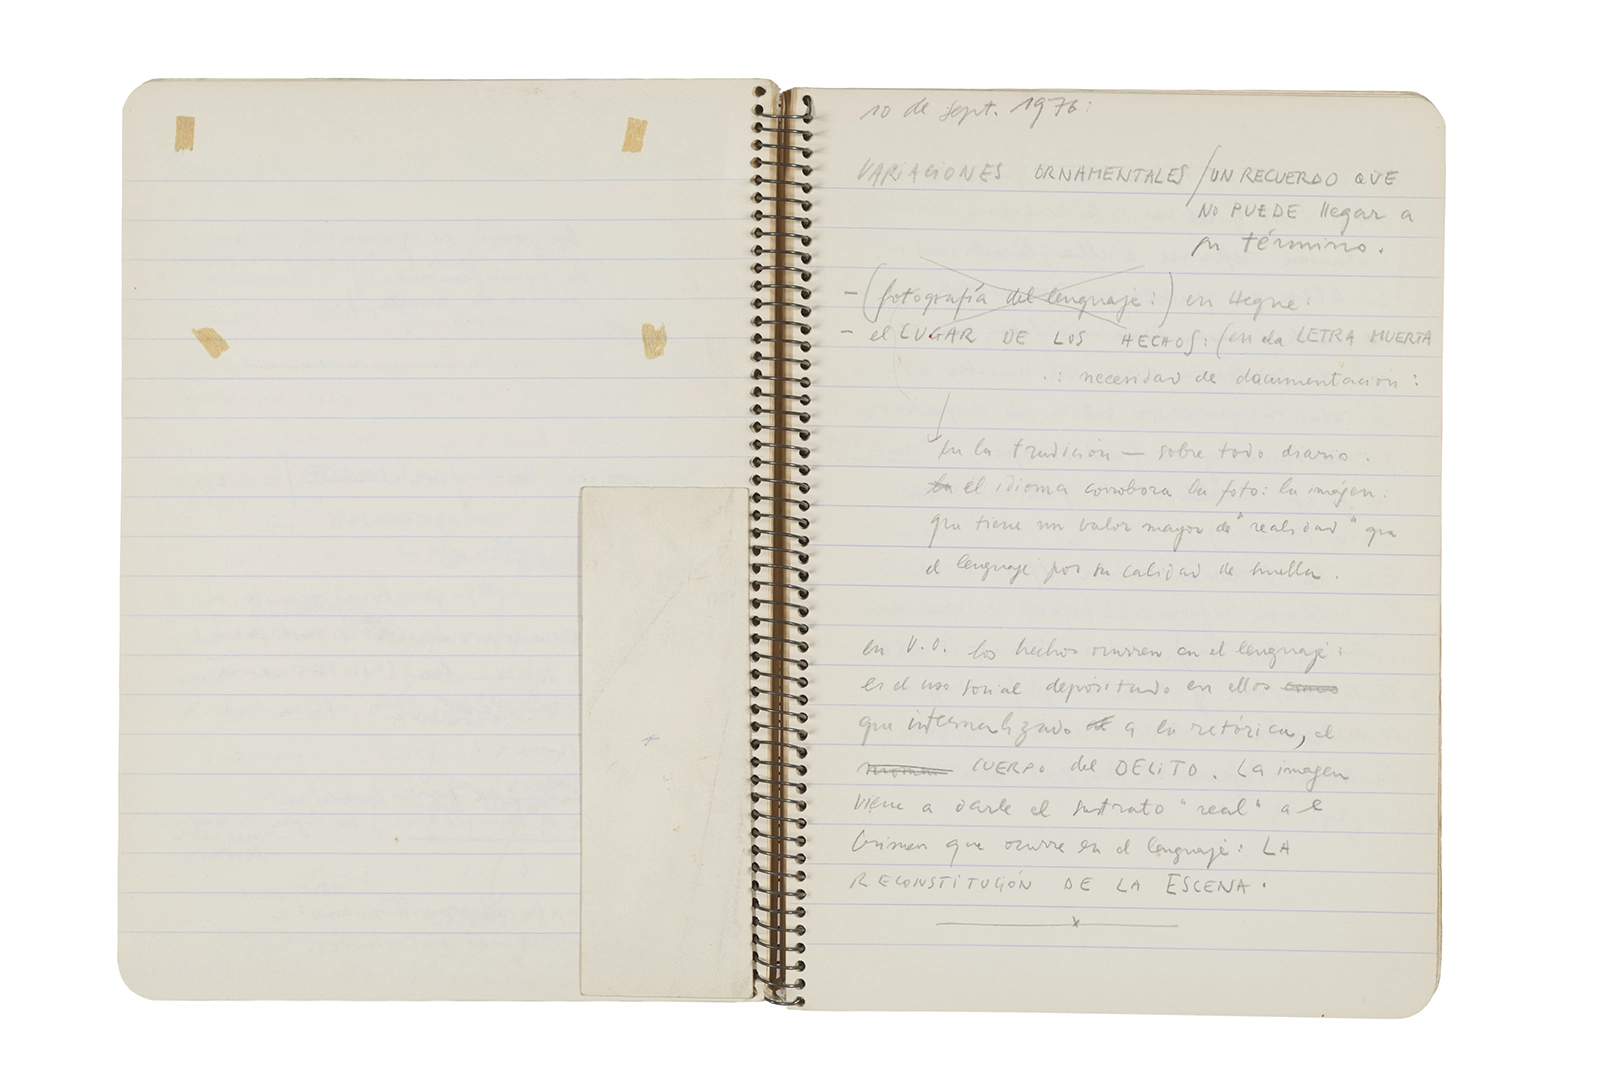 10 de sept. 1976:
VARIACIONES ORNAMENTALES / UN RECUERDO QUE
NO PUEDE llegar a
su término.
- (fotografía del lenguaje:) en Hegne:
- el LUGAR DE LOS HECHOS: (en la LETRA MUERTA
.: necesidad de documentación:
en la tradición — sobre todo diario.
en el idioma corrobora la foto: la imágen.
que tiene un valor mayor de "realidad" que
el lenguaje por su calidad de huella.
en V.O. los hechos ocurren en el lenguaje:
es el uso social depositado en ellos
que internalizado a la retórica, el
CUERPO del DELITO. La imagen
viene a darle el sustrato "real" a el
Crimen que ocurre en el lenguaje: LA
RECONSTITUCIÓN DE LA ESCENA.